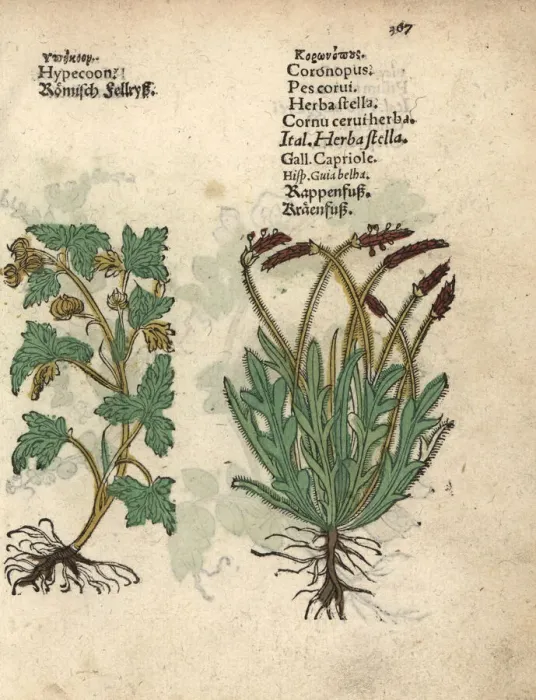 367
Ὑπήκοον.
Hypecoon.
Römisch Fellryß.
Κορωνόπους.
Coronopus.
Pes corui.
Herba stella.
Cornu cerui herba.
Ital. Herba stella.
Gall. Capriole.
Hisp. Guia belha.
Rappenfuß.
Kräenfuß.